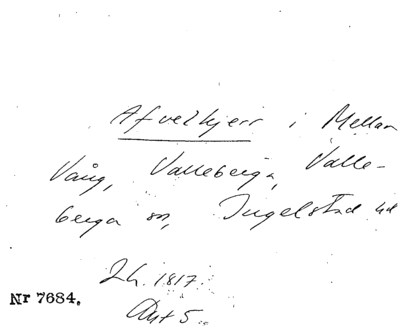 Afvelkjerr i Mellan
Vång, Valleberga, Valle-
berga sn, Ingelstad hd
Lh. 1817.
Akt 5.
Nr 7684.